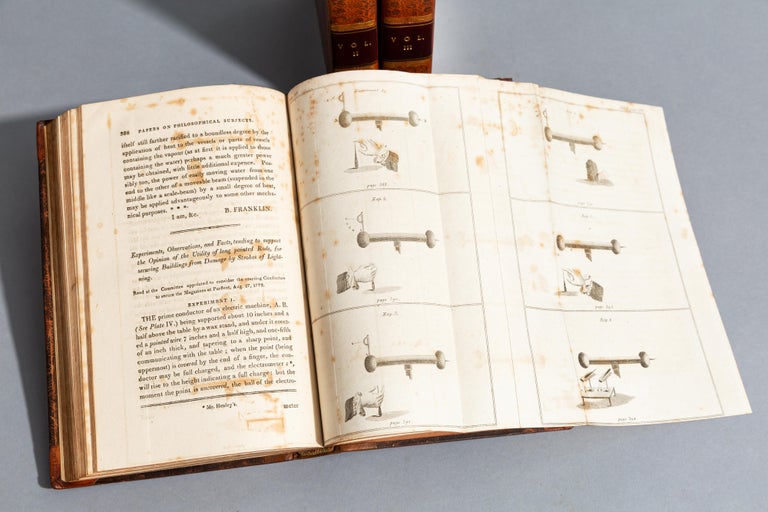 VOL.
II
VOL.
III
388 PAPERS ON PHILOSOPHICAL SUBJECTS.
itself still farther rarified to a boundless degree by the
application of heat to the vessels or parts of vessels
containing the vapour (as at first it is applied to those
containing the water) perhaps a much greater power
may be obtained, with little additional expence. Pos-
sibly too, the power of easily moving water from one
end to the other of a moveable beam (suspended in the
middle like a scale-beam) by a small degree of heat,
may be applied advantageously to some other mecha-
nical purposes. * * *
I am, &c. B. FRANKLIN.
Experiments, Observations, and Facts, tending to support
the Opinion of the Utility of long pointed Rods, for
securing Buildings from Damage by Strokes of Light-
ning.
Read at the Committee appointed to consider the erecting Conductors
to secure the Magazines at Purfleet, Aug. 27, 1772.
EXPERIMENT I.
THE prime conductor of an electric machine, A. B.
(See Plate IV.) being supported about 10 inches and a
half above the table by a wax stand, and under it erect-
ed a pointed wire 7 inches and a half high, and one-fifth
of an inch thick, and tapering to a sharp point, and
communicating with the table; when the point (being
uppermost) is covered by the end of a finger, the con-
ductor may be full charged, and the electrometer c*,
will rise to the height indicating a full charge: but the
moment the point is uncovered, the ball of the electro-
* Mr. Henley's. meter
page 388.
Exp. 2.
page 390.
Exp. 3.
page 390.